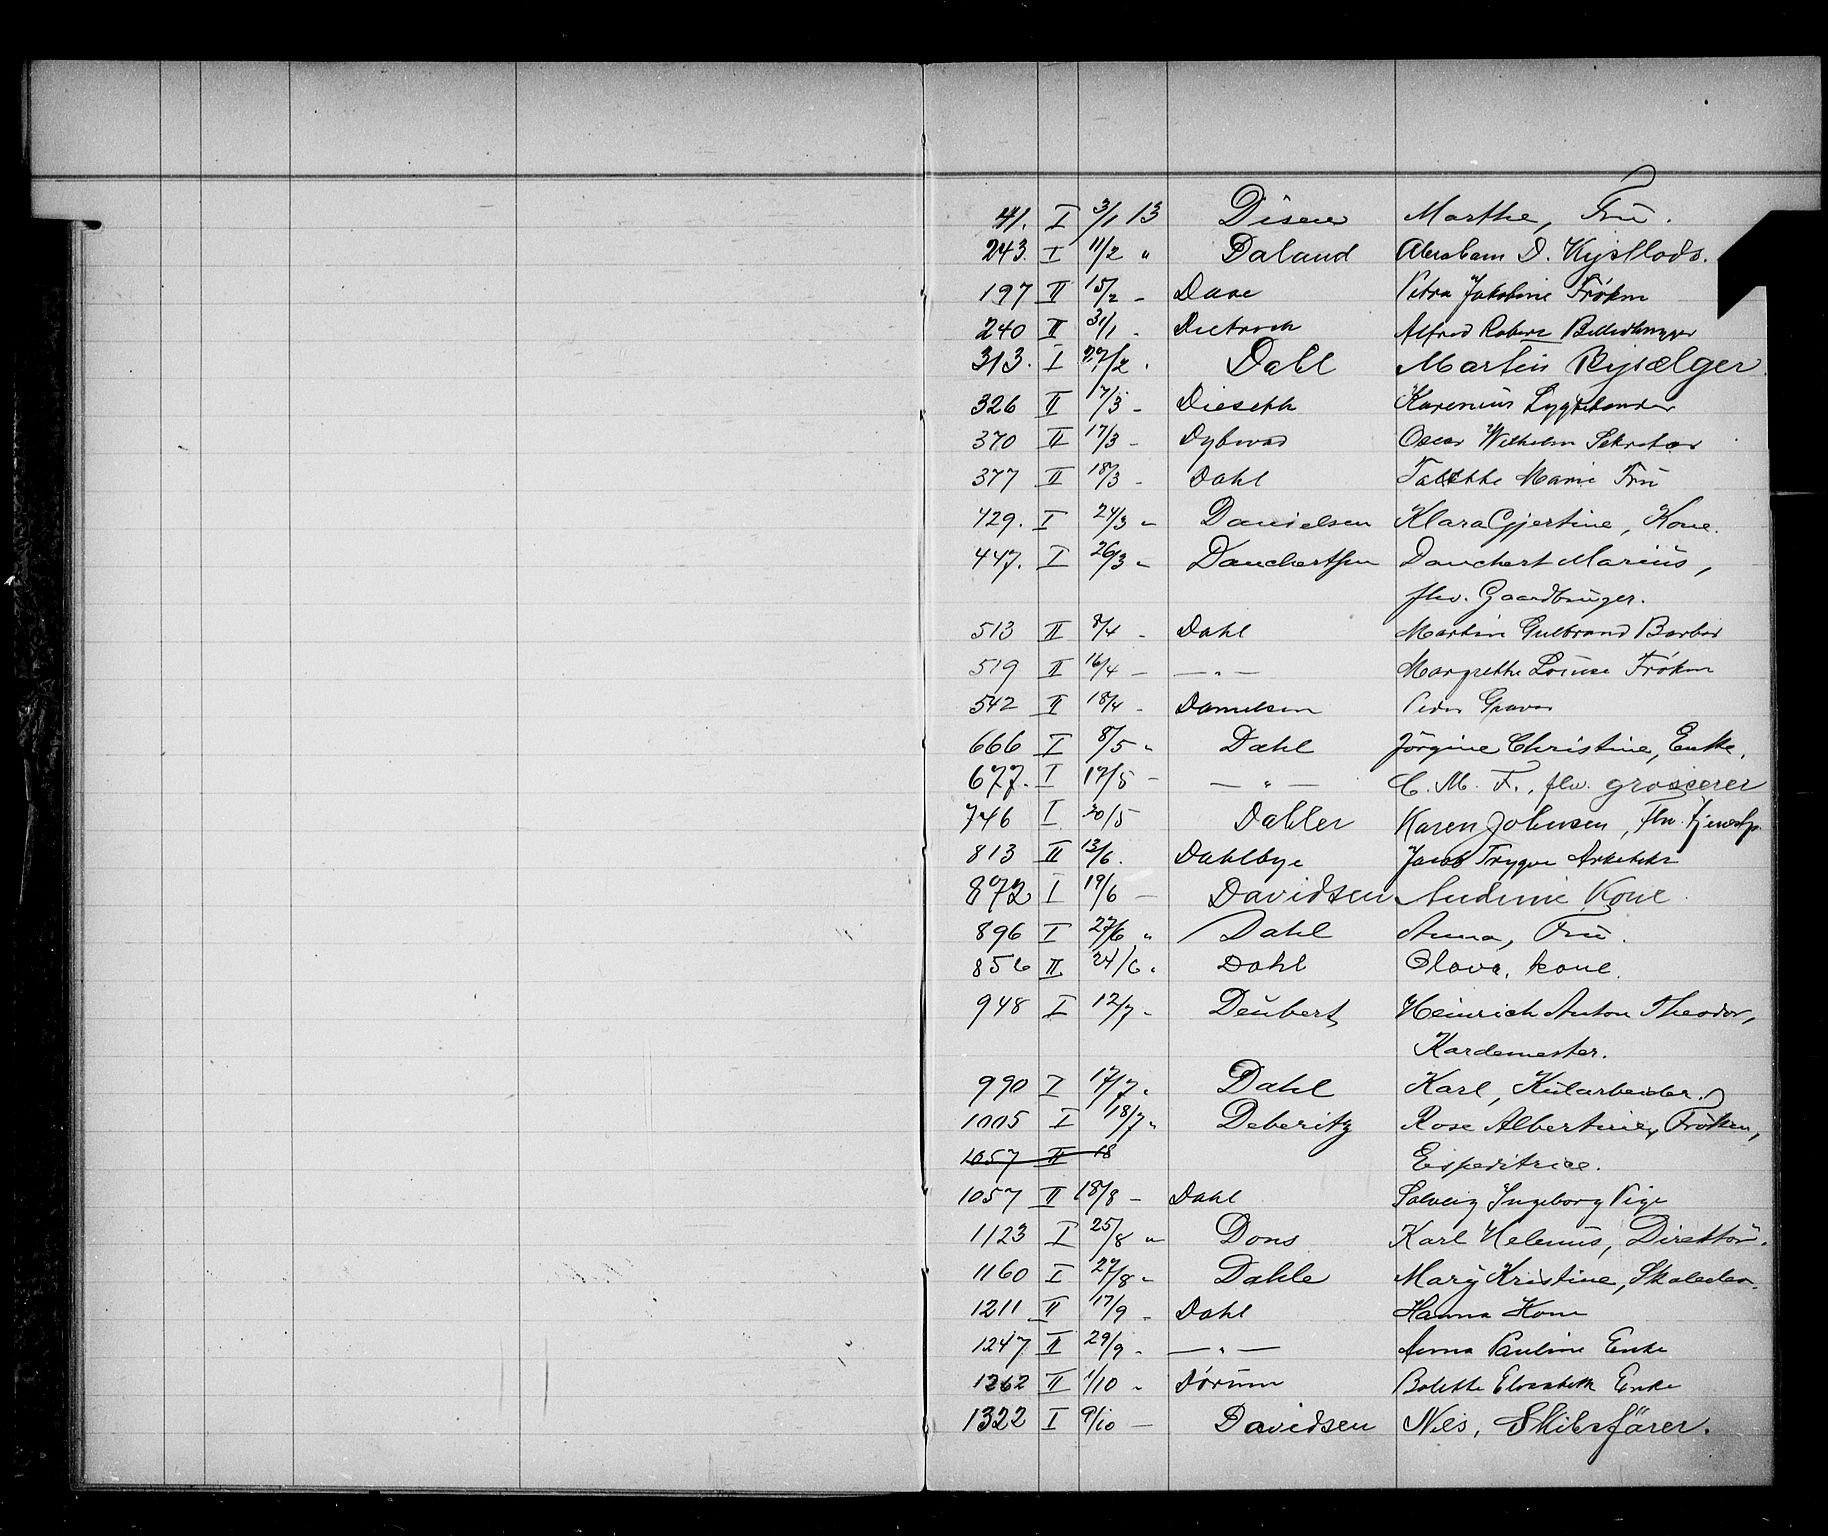 41. I 3/1 13 Disen Marthe, Fru.
243. I 11/2 " Daland Abraham D. Kystlods.
197 II 15/2 - Petra Jakobine Frøken
240 II 31/1 - Alfred Robert
313. I 27/2 . Dahl Martin Bysælger.
326 II 17/3 - Lygtetænder
370 II 17/3 - Dybwad Oscar Wilhelm Sekretær
377 II 18/3 - Dahl Marie Fru
429. I 24/3 " Danielsen Klara Gjertine, Kone.
447. I 26/3 " Danchertsen Danchert Marius,
fhv. Gaardbruger.
513 II 8/4 - Dahl Martin Gulbrand Barber
519 II 16/4 - — " — Margrethe Louise Frøken
542 II 18/4 - Danielsen Peder Graver
666 I 8/5 " Dahl Jørgine Christine, Enke.
677. I 17/5 - — " — C. M. F., fhv. grosserer
746 I 20/5 Dahler Karen Johnsen, fhv.
813 II 13/6. Dahlbye Jacob Trygve Arkitekt
872 I 19/6 - Davidsen Kone
896 I 27/6 " Dahl Anna, Fru.
856 II 24/6. Dahl Olava, kone.
948 I 12/7 - Deubert, Heinrich Anton Theodor,
Kardemester.
990 I 17/7 " Dahl Karl, Kularbeider.
1005 I 18/7 " Deberitz Rose Albertine, Frøken,
1057 II 18 Expeditrice.
1057 II 18/8 - Dahl Solveig Ingeborg Pige
1123 I 25/8 " Dons Karl Helenus, Direktör.
1160 I 27/8 " Dahle Mary Kristine,
1211 II 17/9 - Dahl Hanna Kone
1247 II 29/9 - — " — Anna Pauline Enke
1262 II 1/10 - Dørum Bolette Elisabeth Enke
1322 I 9/10 — Davidsen Nils, Skibsfører.